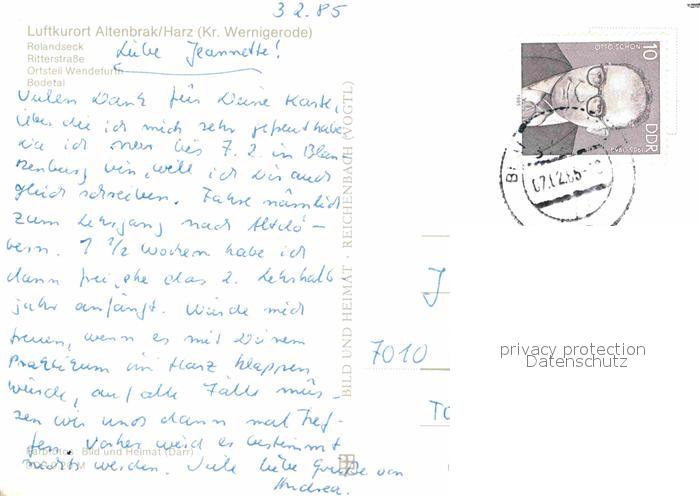 3 2. 85
Luftkurort Altenbrak/Harz (Kr. Wernigerode)
Rolandseck
Ritterstraße
Ortsteil Wendefurth
Bodetal
Liebe Jeannette!
Vielen Dank für Deine Karte,
über die ich mich sehr gefreut habe.
Da ich nur bis 7. 2. in Blan
kenburg bin, will ich Dir auch
gleich schreiben. Fahre nämlich
zum Lehrgang nach Altdö-
bern. 1 1/2 Wochen habe ich
dann frei, ehe das 2. Lehrhalb
jahr anfängt. Würde mich
freuen, wenn es mit Deinem
Praktikum im Harz klappen
würde, auf alle Fälle müs-
sen wir uns dann mal tref-
fen. Vorher wird es bestimmt
nichts werden. Viele liebe Grüße von
Andrea.
Farbfotos: Bild und Heimat (Darr)
BILD UND HEIMAT · REICHENBACH (VOGTL)
OTTO SCHÖN
10
DDR
1985
07.02.85
J
7010
privacy protection
Datenschutz